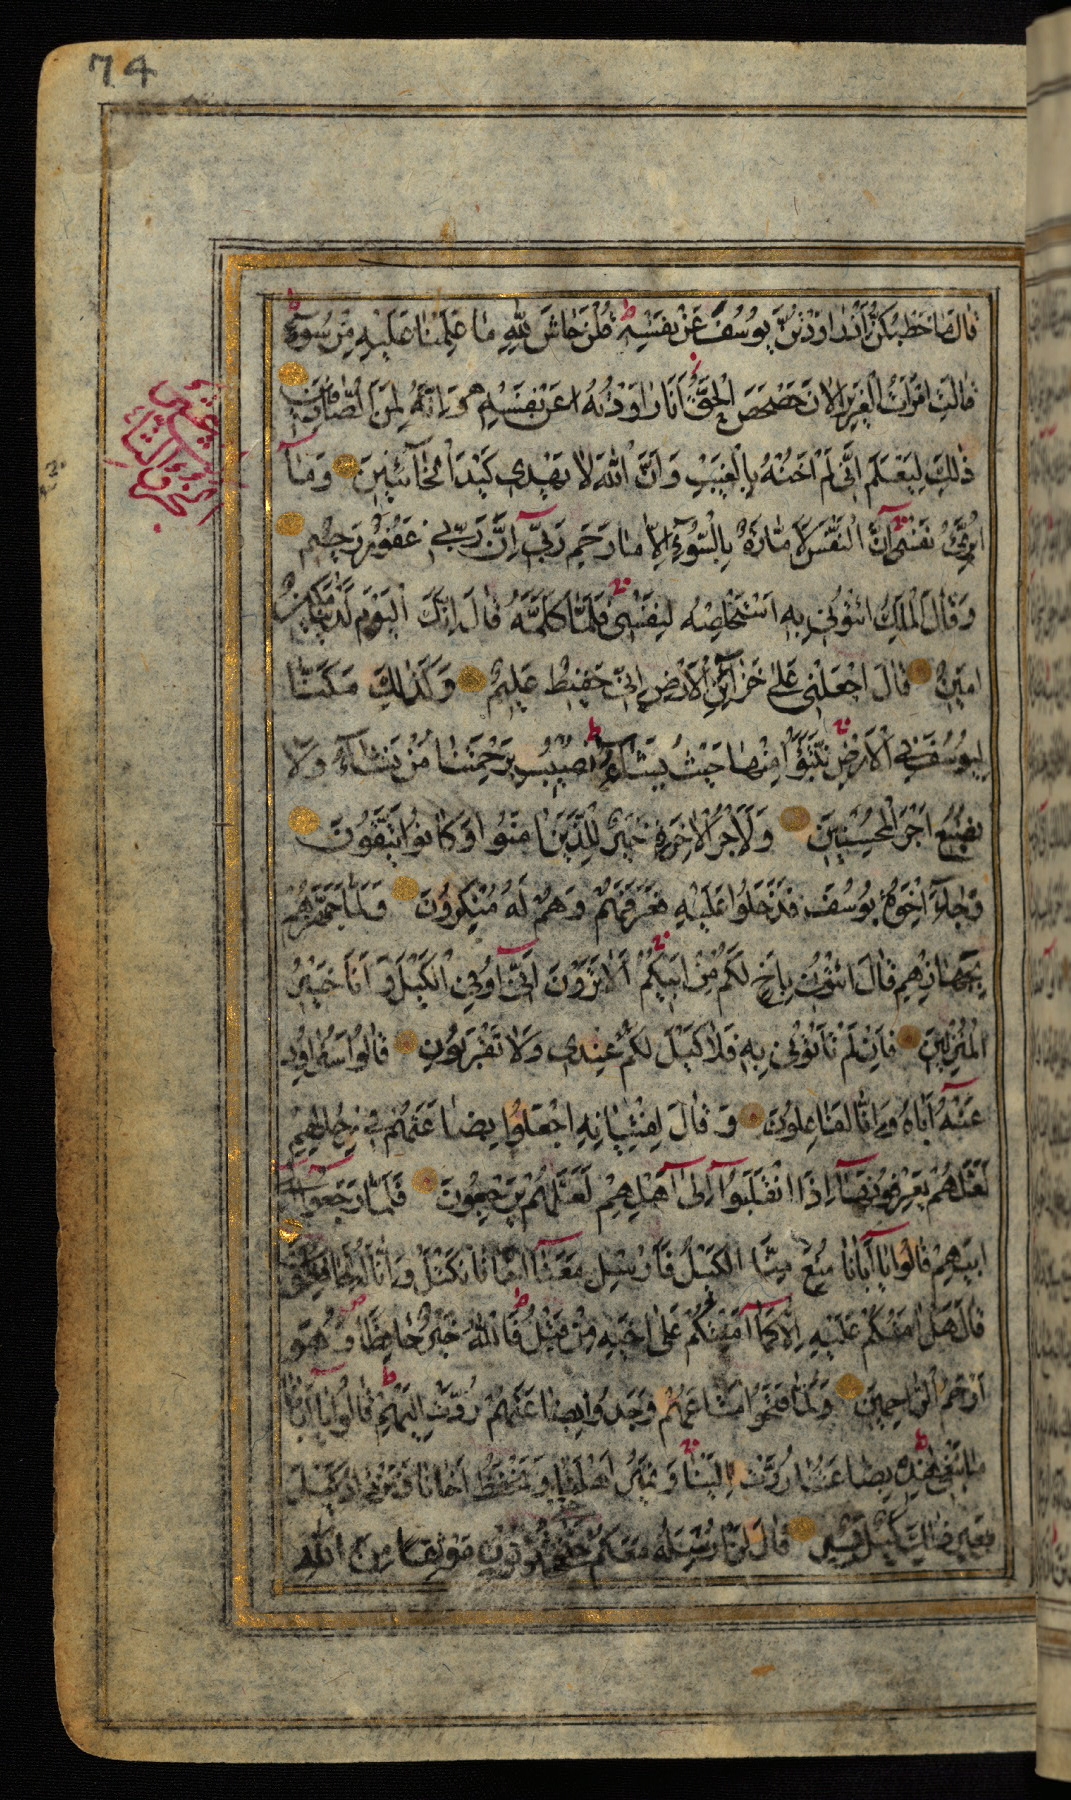 74
قَالَ مَا خَطْبُكُنَّ إِذْ رَاوَدْتُنَّ يُوسُفَ عَنْ نَفْسِهِ قُلْنَ حَاشَ لِلَّهِ مَا عَلِمْنَا عَلَيْهِ مِنْ سُوءٍ
قَالَتِ امْرَأَتُ الْعَزِيزِ الْآنَ حَصْحَصَ الْحَقُّ أَنَا رَاوَدْتُهُ عَنْ نَفْسِهِ وَإِنَّهُ لَمِنَ الصَّادِقِينَ
ذٰلِكَ لِيَعْلَمَ أَنِّي لَمْ أَخُنْهُ بِالْغَيْبِ وَأَنَّ اللَّهَ لَا يَهْدِي كَيْدَ الْخَائِنِينَ وَمَا
أُبَرِّئُ نَفْسِي إِنَّ النَّفْسَ لَأَمَّارَةٌ بِالسُّوءِ إِلَّا مَا رَحِمَ رَبِّي إِنَّ رَبِّي غَفُورٌ رَحِيمٌ
وَقَالَ الْمَلِكُ ائْتُونِي بِهِ أَسْتَخْلِصْهُ لِنَفْسِي فَلَمَّا كَلَّمَهُ قَالَ إِنَّكَ الْيَوْمَ لَدَيْنَا مَكِينٌ
أَمِينٌ قَالَ اجْعَلْنِي عَلَىٰ خَزَائِنِ الْأَرْضِ إِنِّي حَفِيظٌ عَلِيمٌ وَكَذٰلِكَ مَكَّنَّا
لِيُوسُفَ فِي الْأَرْضِ يَتَبَوَّأُ مِنْهَا حَيْثُ يَشَاءُ نُصِيبُ بِرَحْمَتِنَا مَنْ نَشَاءُ وَلَا
نُضِيعُ أَجْرَ الْمُحْسِنِينَ وَلَأَجْرُ الْآخِرَةِ خَيْرٌ لِلَّذِينَ آمَنُوا وَكَانُوا يَتَّقُونَ
وَجَاءَ إِخْوَةُ يُوسُفَ فَدَخَلُوا عَلَيْهِ فَعَرَفَهُمْ وَهُمْ لَهُ مُنْكِرُونَ وَلَمَّا جَهَّزَهُمْ
بِجَهَازِهِمْ قَالَ ائْتُونِي بِأَخٍ لَكُمْ مِنْ أَبِيكُمْ أَلَا تَرَوْنَ أَنِّي أُوفِي الْكَيْلَ وَأَنَا خَيْرُ
الْمُنْزِلِينَ فَإِنْ لَمْ تَأْتُونِي بِهِ فَلَا كَيْلَ لَكُمْ عِنْدِي وَلَا تَقْرَبُونِ قَالُوا سَنُرَاوِدُ
عَنْهُ أَبَاهُ وَإِنَّا لَفَاعِلُونَ وَقَالَ لِفِتْيَانِهِ اجْعَلُوا بِضَاعَتَهُمْ فِي رِحَالِهِمْ
لَعَلَّهُمْ يَعْرِفُونَهَا إِذَا انْقَلَبُوا إِلَىٰ أَهْلِهِمْ لَعَلَّهُمْ يَرْجِعُونَ فَلَمَّا رَجَعُوا إِلَىٰ
أَبِيهِمْ قَالُوا يَا أَبَانَا مُنِعَ مِنَّا الْكَيْلُ فَأَرْسِلْ مَعَنَا أَخَانَا نَكْتَلْ وَإِنَّا لَهُ لَحَافِظُونَ
قَالَ هَلْ آمَنُكُمْ عَلَيْهِ إِلَّا كَمَا أَمِنْتُكُمْ عَلَىٰ أَخِيهِ مِنْ قَبْلُ فَاللَّهُ خَيْرٌ حَافِظًا وَهُوَ
أَرْحَمُ الرَّاحِمِينَ وَلَمَّا فَتَحُوا مَتَاعَهُمْ وَجَدُوا بِضَاعَتَهُمْ رُدَّتْ إِلَيْهِمْ قَالُوا يَا أَبَانَا
مَا نَبْغِي هٰذِهِ بِضَاعَتُنَا رُدَّتْ إِلَيْنَا وَنَمِيرُ أَهْلَنَا وَنَحْفَظُ أَخَانَا وَنَزْدَادُ كَيْلَ
بَعِيرٍ ذٰلِكَ كَيْلٌ يَسِيرٌ قَالَ لَنْ أُرْسِلَهُ مَعَكُمْ حَتَّىٰ تُؤْتُونِ مَوْثِقًا مِنَ اللَّهِ